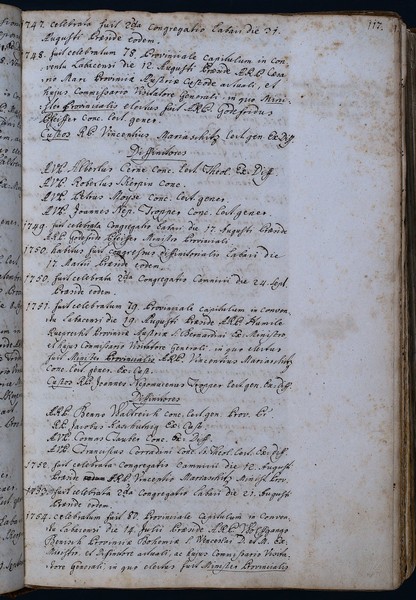 117.
1747. celebrata fuit 2da Congregatio Labaci die 21.
Augusti Praeside eodem.
1748. fuit celebratum 78. Provinciale capitulum in con-
ventu Labacensi die 12 Augusti Praeside
Provinciae Austriae Custode actuali, et
hujus Commissario Visitatore Generali, in quo Mini-
ster Provincialis electus fuit A.R.P. Godefridus
Pfeiffer Conc. lect. gener.
Custos R.P. Vincentius Mariaschitz lect. gen. Ex-Diff.
Diffinitores
A.V.P. Albertus Cerne conc. lect. Theol. Ex. Diff.
A.V.P. Robertus Skerpin conc.
A.V.P. Petrus Moyse conc. lect. gener.
A.V.P. Joannes Nep. Tropper conc. lect. gener.
1749. fuit celebrata Congregatio Labaci die 17 Augusti Praeside
A.R.P. Godefrido Pfeiffer Ministro Provinciali.
1750. habitus fuit Congressus Diffinitorialis Labaci die
17 Martii Praeside eodem.
1750. fuit celebrata 2da Congregatio Camnicii die 24 Sept.
Praeside eodem.
1751. fuit celebratum 79. Provinciale capitulum in conven-
tu Labacensi die 19 Augusti Praeside A.R.P. Humile
Provinciae Austriae S. Bernardini Ex-Ministro,
et hujus Commissario Visitatore Generali, in quo electus
fuit Minister Provincialis A.R.P. Vincentius Mariaschitz
Conc. lect. gener. Ex. Cust.
Custos R.P. Joannes Nepomucenus Tropper lect. gen. Ex. Diff.
Diffinitores
A.R.P. Benno Conc. lect. gen. Prov.
R.P. Jacobus Ex: Cust.
A.V.P. Cosmas Clauber Conc. Ex: Diff.
A.V.P. Franciscus Corradini Conc. S. Theol. Lect. Ex: Diff.
1752. fuit celebrata Congregatio Camnicii die 12. Augusti
Praeside Vincentio Mariaschitz Minist. Prov.
1753. fuit celebrata 2da Congregatio Labaci die 21. Augusti
Praeside eodem.
1754. celebratum fuit 80. Provinciale Capitulum in Conven-
tu Labacensi die 14. Julii Praeside A.R.P. Wolffgango
Provinciae Bohemiae S. Wenceslai Ex.
Ministro, et Definitore actuali, ac hujus Commissario Visita-
tore Generali, in quo electus fuit Minister Provincialis